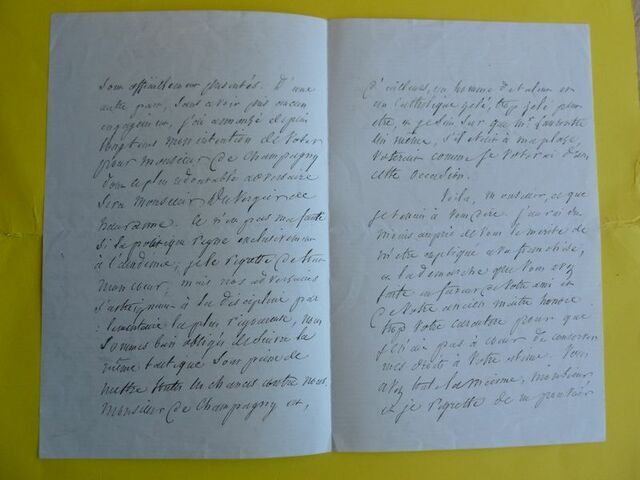 sont officiellement présentés. D'une
autre part, sans avoir pris aucun
engagement, j'ai annoncé depuis
longtemps mon intention de voter
pour Monsieur de Champagny
dont le plus redoutable adversaire
sera Monsieur Duvergier de
hauranne. Ce n'est pas ma faute
si la politique règne exclusivement
à l'académie; je le regrette de tout
mon cœur, mais nos adversaires
s'astreignant à la discipline par
:lementaire la plus rigoureuse, nous
sommes bien obligés de suivre la
même tactique sous peine de
mettre toutes les chances contre nous.
Monsieur de Champagny est,
d'ailleurs, un homme de talent et
un catholique zélé, trop zélé peut
être, et je suis sur que Mr
lui même, s'il était à ma place,
voterait comme je voterai dans
cette occasion.
Voila, Monsieur, ce que
je tenais à vous dire. J'aurai du
moins auprès de vous le mérite de
m'être expliqué avec franchise,
et la démarche que vous avez
faite en faveur de votre ami et
de votre ancien maitre honore
trop votre caractère pour que
je n'aie pas à cœur de conserver
mes droits à votre estime. Vous
avez tout la mienne, Monsieur
et je regrette de ne pouvoir